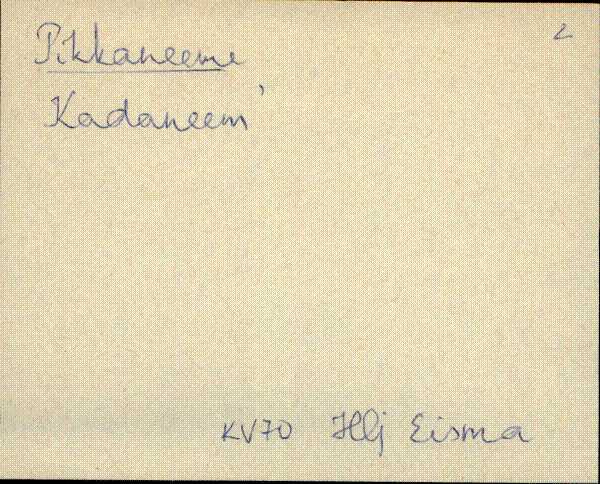 2
Pikkaneeme
Kadaneem'
KV70 Hlj Eisma